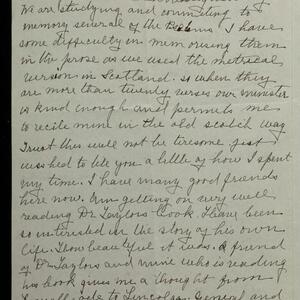 We are studying and committing to
memory several of the Psalms I have
some difficulty in memorising them
in the prose as we used the metrical
version in Scotland. So when they
are more than twenty verses our minister
is kind enough and permits me
to recite mine in the old scotch way
Trust this will not be tiresome just
wished to tell you a little of how I spent
my time. I have many good friends
here now. Am getting on very well
reading Dr Taylors book. Have been
so interested in the story of his own
life. How beautiful it was. A friend
of Dr Taylors and mine who is reading
his book gives me a thought from
General and